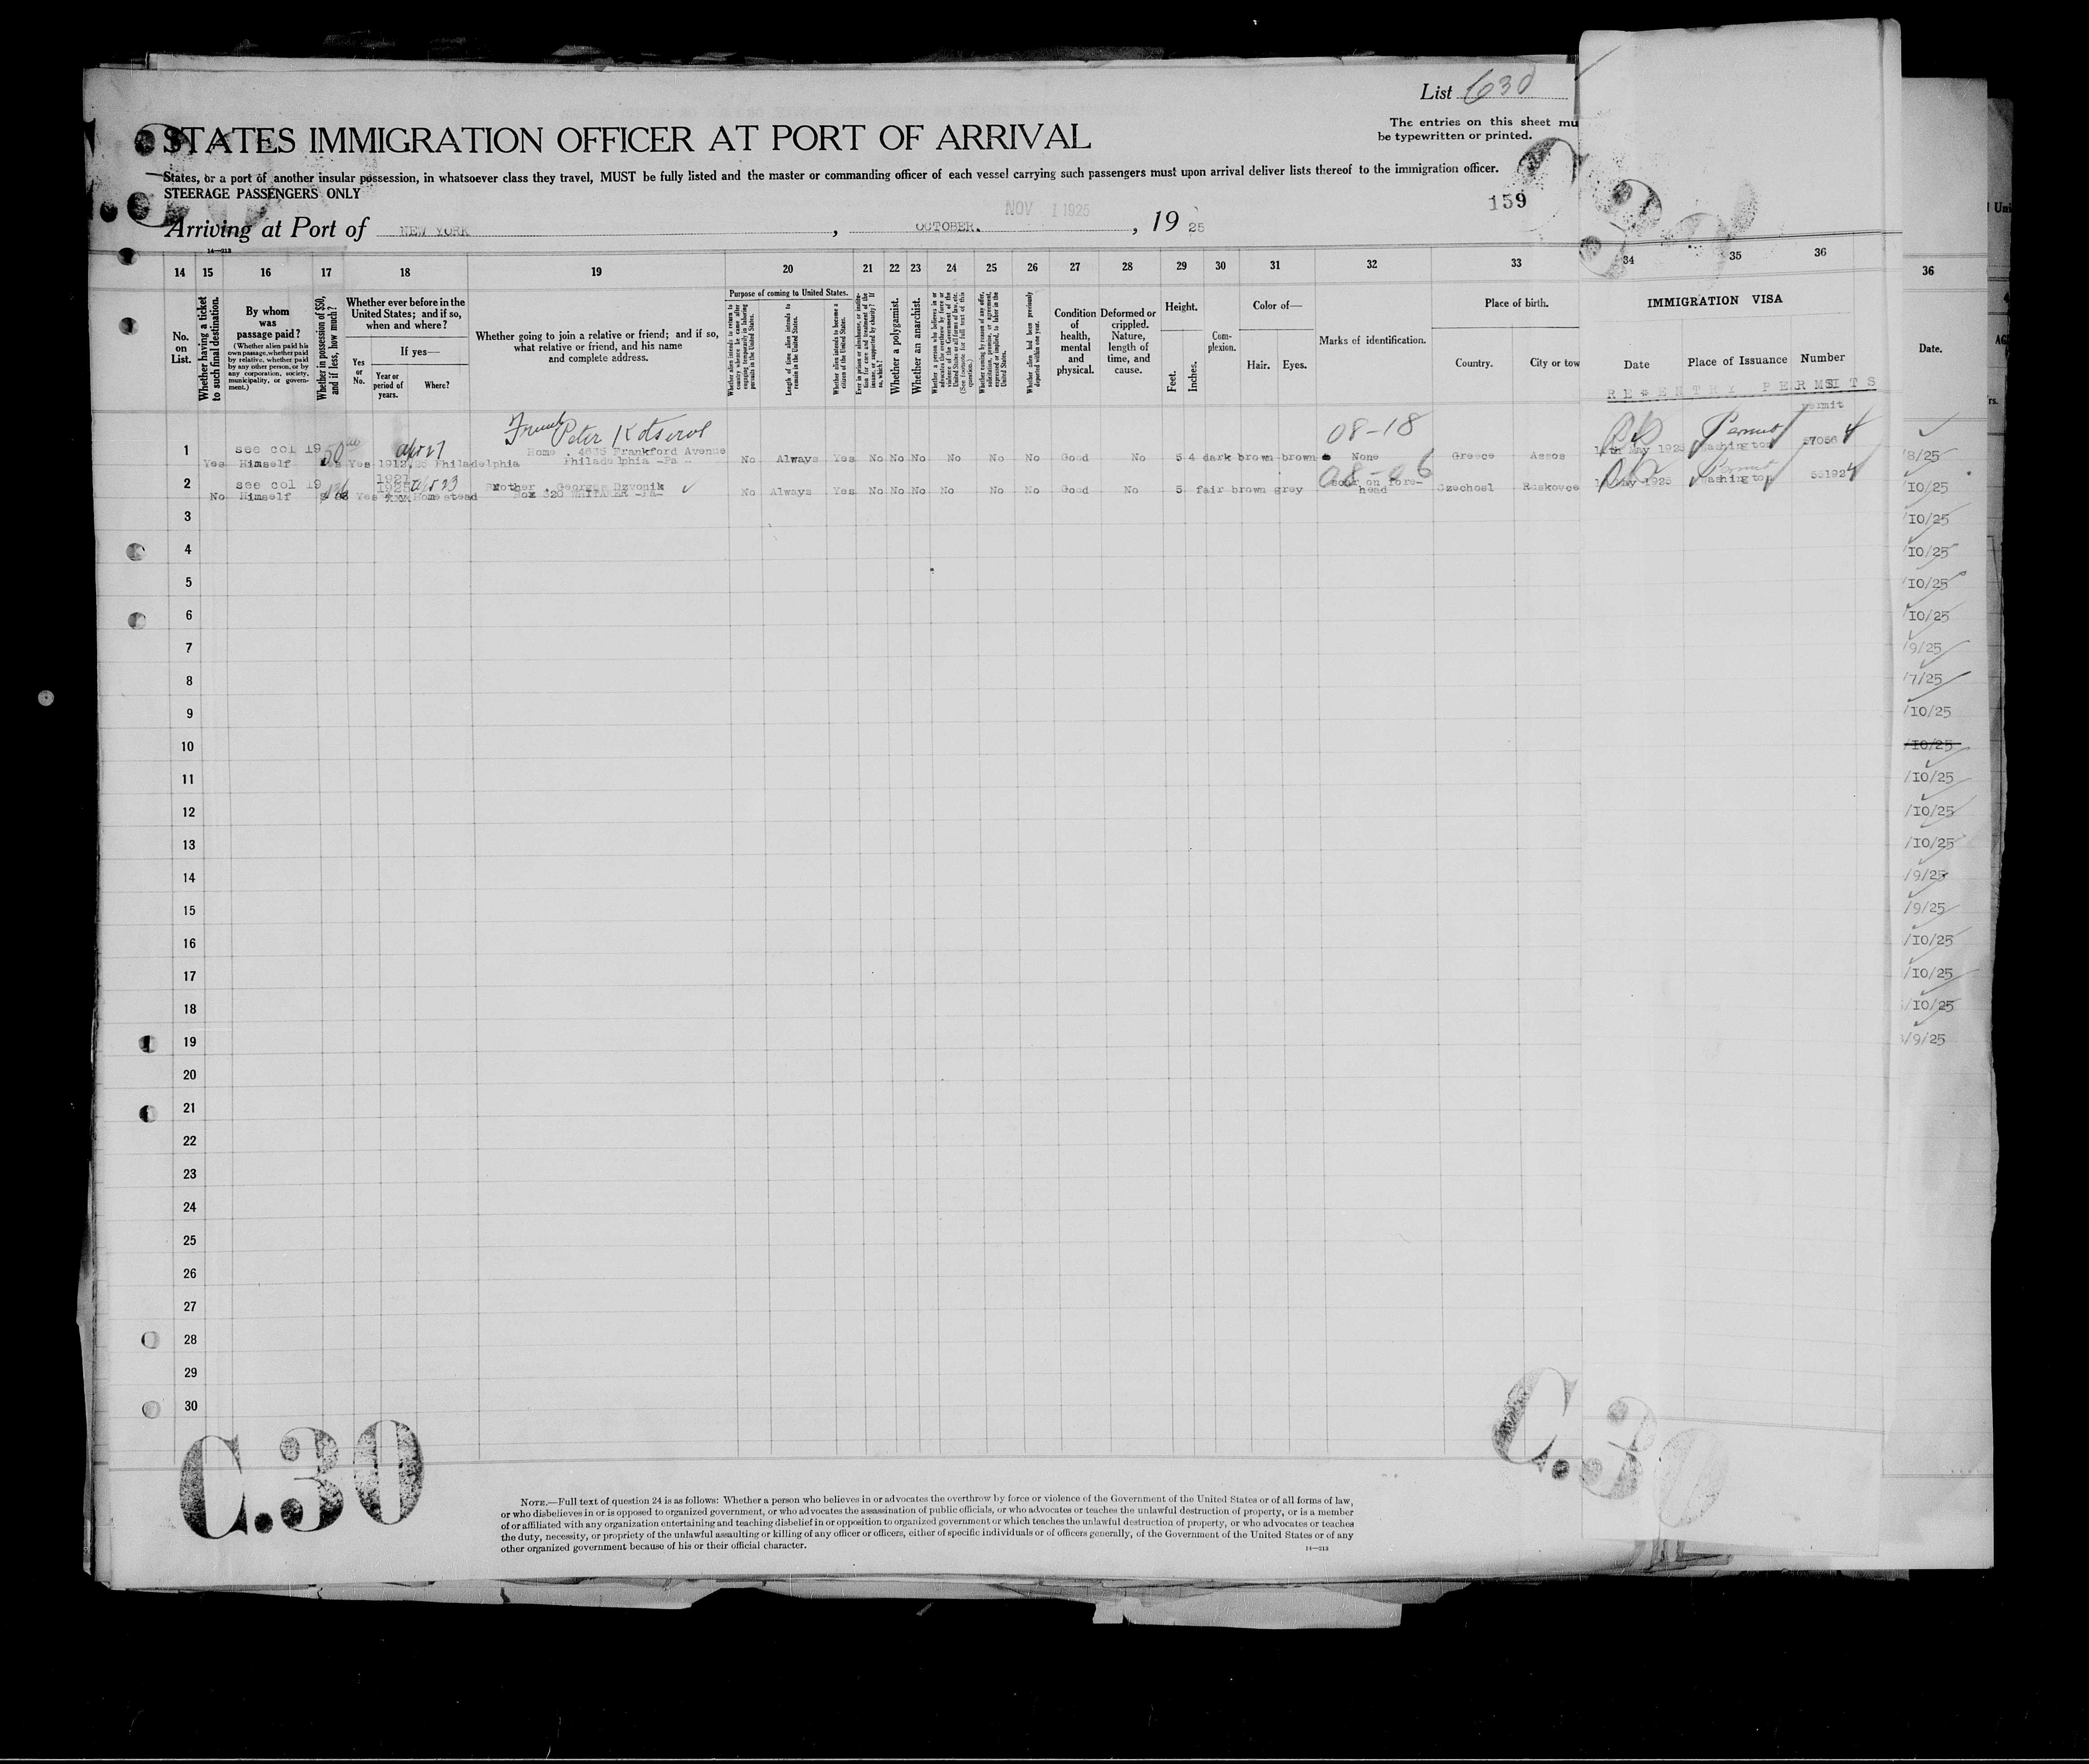 List 630
STATES IMMIGRATION OFFICER AT PORT OF ARRIVAL
The entries on this sheet mu
be typewritten or printed.
States, or a port of another insular possession, in whatsoever class they travel, MUST be fully listed and the master or commanding officer of each vessel carrying such passengers must upon arrival deliver lists thereof to the immigration officer.
STEERAGE PASSENGERS ONLY
159
NOV 1 1925
Arriving at Port of NEW YORK, OCTOBER. , 19 25
14—213
14 15 16 17 18 19 20 21 22 23 24 25 26 27 28 29 30 31 32 33 34 35 36
36
No. on List.
Whether having a ticket to such final destination.
By whom was passage paid?
(Whether alien paid his own passage, whether paid by relative, whether paid by any other person, or by any corporation, society, municipality, or government.)
Whether in possession of $50, and if less, how much?
Whether ever before in the United States; and if so, when and where?
Yes or No.
If yes—
Year or period of years.
Where?
Whether going to join a relative or friend; and if so, what relative or friend, and his name and complete address.
Purpose of coming to United States.
Length of time alien intends to remain in the United States.
Whether alien intends to become a citizen of the United States.
Whether a polygamist.
Whether an anarchist.
Whether alien had been previously deported within one year.
Condition of health, mental and physical.
Deformed or crippled. Nature, length of time, and cause.
Height.
Feet.
Inches.
Complexion.
Color of—
Hair. Eyes.
Marks of identification.
Place of birth.
Country. City or tow
IMMIGRATION VISA
Date Place of Issuance Number
REENTRY PERMITS
permit
Date.
Frank Peter 08-18 Permit
1 Yes see col 19 Himself 50 Yes 1912/25 Philadelphia Home . 4635 Frankford Avenue Philadelphia -Pa - No Always Yes No No No No No No Good No 5 4 dark brown brown None Greece Assos May 1925 Washington 57056
08-06
2 No see col 19 Himself Yes Homestead Brother Georges Dzvonik Box 320 -Pa- No Always Yes No No No No No No Good No 5 fair brown grey scar on forehead Czechosl Ruskovce May 1925 Washington 55192
3
4
5
6
7
8
9
10
11
12
13
14
15
16
17
18
19
20
21
22
23
24
25
26
27
28
29
30
/8/25
/10/25
/10/25
/10/25
/10/25
/10/25
/9/25
/7/25
/10/25
/10/25
/10/25
/10/25
/10/25
/9/25
/9/25
/10/25
/10/25
/10/25
/9/25
C.30
C.30
NOTE.—Full text of question 24 is as follows: Whether a person who believes in or advocates the overthrow by force or violence of the Government of the United States or of all forms of law,
or who disbelieves in or is opposed to organized government, or who advocates the assassination of public officials, or who advocates or teaches the unlawful destruction of property, or is a member
of or affiliated with any organization entertaining and teaching disbelief in or opposition to organized government or which teaches the unlawful destruction of property, or who advocates or teaches
the duty, necessity, or propriety of the unlawful assaulting or killing of any officer or officers, either of specific individuals or of officers generally, of the Government of the United States or of any
other organized government because of his or their official character.
14—213